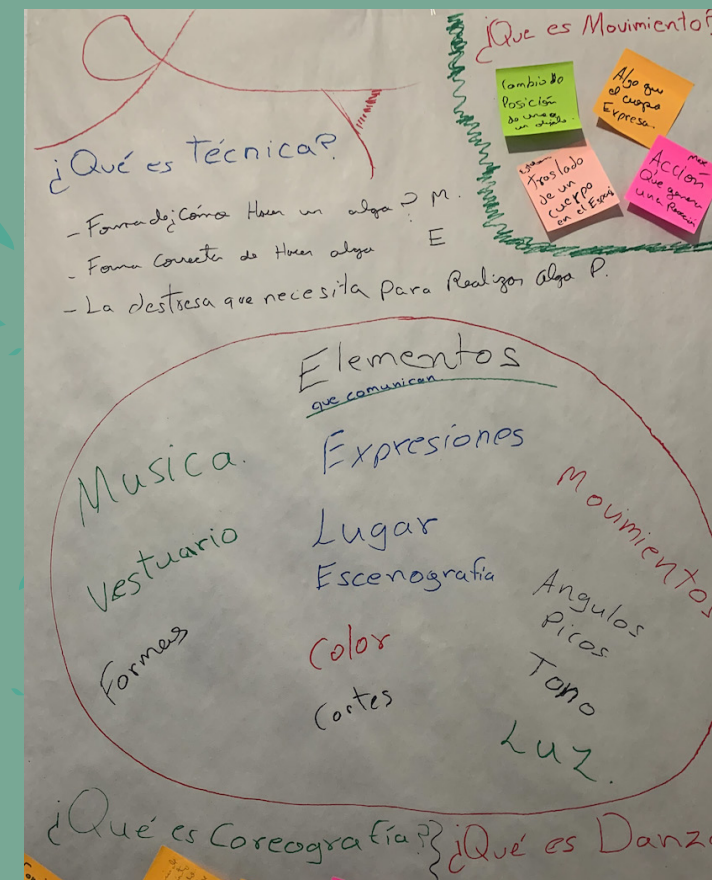 ¿Qué es Movimiento?
Cambio de
Posición
de uno o
un objeto.
Algo que
el cuerpo
Expresa.
Traslado
de un
cuerpo
en el Espaci
Max
Acción
Que genera
una Reacción
¿Qué es Técnica?
- Forma de ¿Cómo Hacer un algo? M.
- Forma Correcta de Hacer algo E
- La destresa que necesita Para Realizar algo P.
Elementos
que comunican
Musica.
Expresiones
Movimientos
Vestuario
Lugar
Escenografia
Angulos
Picos
Formas
Color
Tono
Cortes
Luz.
¿Qué es Coreografía? ¿Qué es Danza